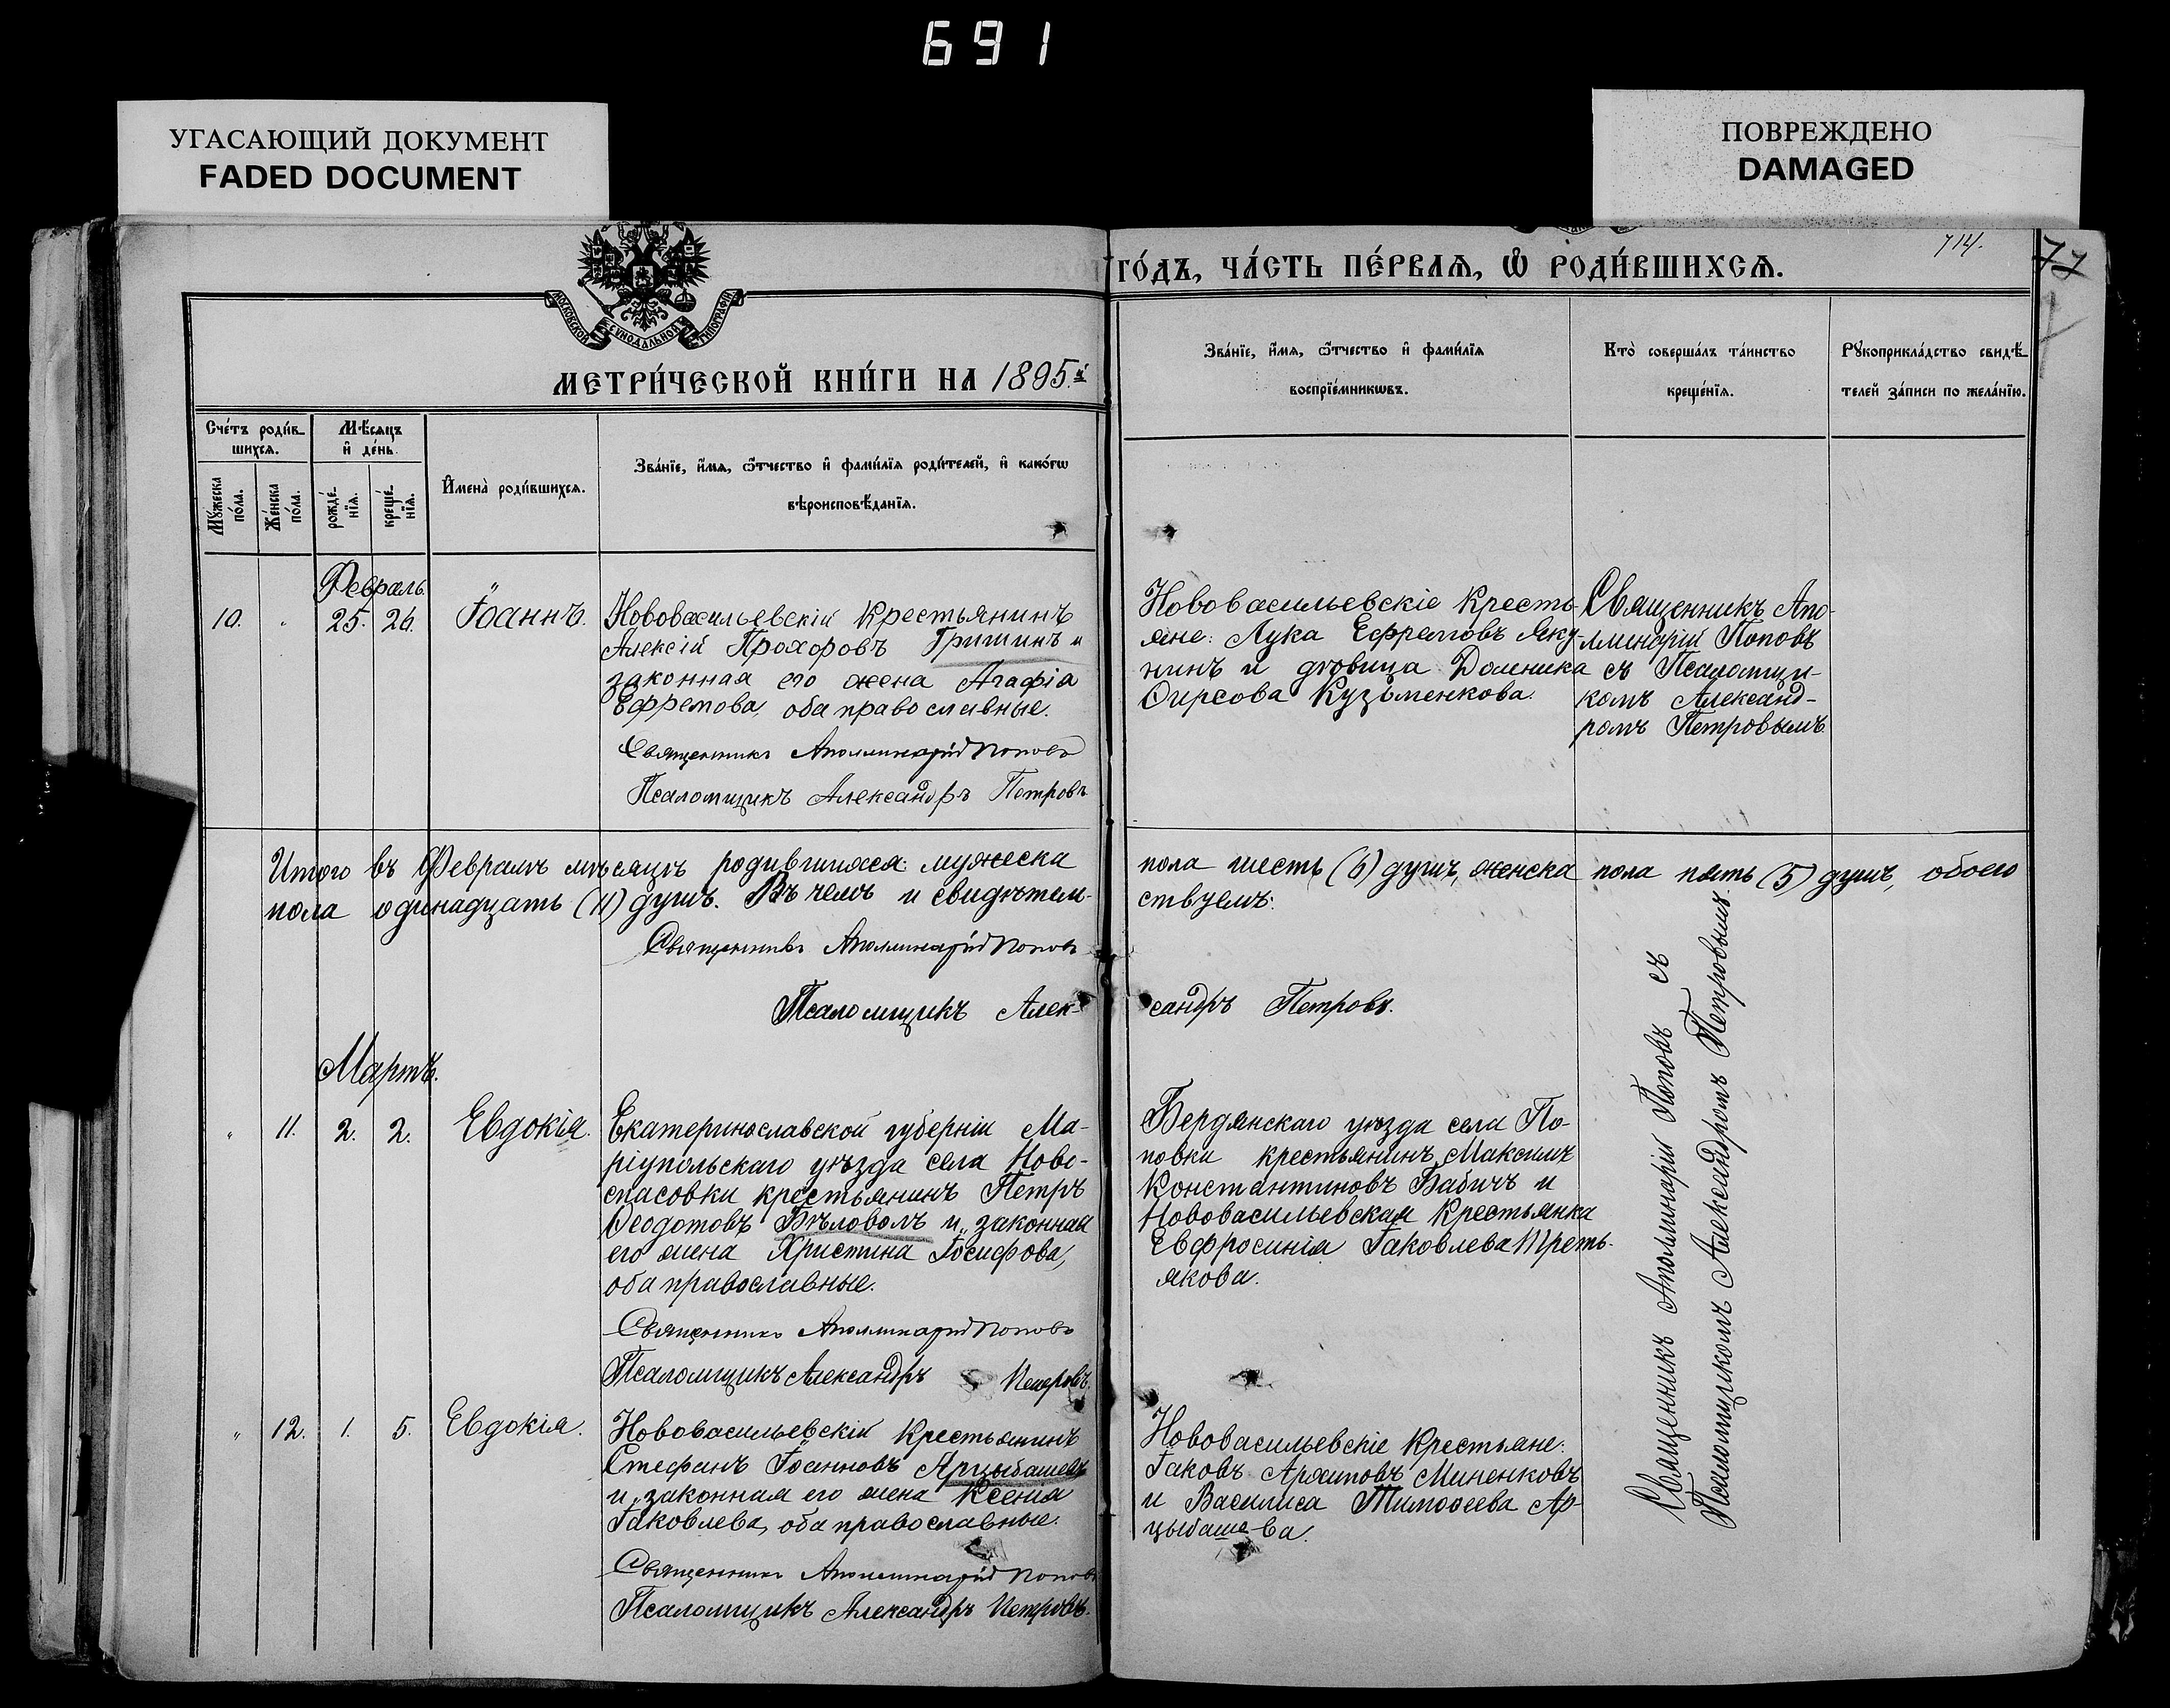 691
УГАСАЮЩИЙ ДОКУМЕНТ
FADED DOCUMENT
ПОВРЕЖДЕНО
DAMAGED
МОСКОВСКОЙ СУНОДАЛЬНОЙ ТИПОГРАФІИ
МЕТРИ́ЧЕСКОЙ КНИ́ГИ НА 1895й
ГО́ДЪ, ЧА́СТЬ ПЕ́РВАЯ, Ѽ РОДИ́ВШИХСЯ.
714.
77
Сче́тъ роди́вшихся.
Мѣ́сяцъ и де́нь.
Мꙋ́жеска по́ла.
Же́нска по́ла.
рожде́нїя.
креще́нїя.
Имена̀ роди́вшихся.
Зва́нїе, и́мя, ѻ҆́тчество и фами́лїя роди́телей, и како́гѡ
вѣроисповѣ́данїя.
Зва́нїе, и́мя, ѻ҆́тчество и фами́лїя
воспрїе́мникѡвъ.
Кто̀ соверша́лъ та́инство
креще́нїя.
Рꙋкоприкла́дство свидѣ́-
телей за́писи по жела́нїю.
Февраль.
10. „ 25. 26. Іоаннъ.
Нововасильевскій крестьянинъ
Алексій Прохоровъ Гришинъ и
законная его жена Агафія
Ефремова, оба православные.
Священникъ Аполлинарій Поповъ
Псаломщикъ Александръ Петровъ
Нововасильевскіе кресть-
яне: Лука Ефремовъ Яку-
нинъ и дѣвица Домника
Ѳирсова Кузьменкова.
Священникъ Апо-
ллинарій Поповъ
съ Псаломщи-
комъ Александ-
ромъ Петровымъ
Итого въ Февралѣ мѣсяцѣ родившихся: мужеска пола шесть (6) душъ, женска пола пять (5) душъ, обоего
пола одинадцать (11) душъ. Въ чемъ и свидѣтель-ствуемъ:
Священникъ Аполлинарій Поповъ
Псаломщикъ Алек-сандръ Петровъ.
Мартъ.
„ 11. 2. 2. Евдокія.
Екатеринославской губерніи Ма-
ріупольскаго уѣзда села Ново-
спасовки крестьянинъ Петръ
Ѳеодотовъ Бѣловолъ и законная
его жена Христина Іосифова,
оба православные.
Священникъ Аполлинарій Поповъ
Псаломщикъ Александръ Петровъ.
Бердянскаго уѣзда села По-
повки крестьянинъ Максимъ
Константиновъ Бабичъ и
Нововасильевская крестьянка
Евфросинія Іаковлева Треть-
якова.
„ 12. 1. 5. Евдокія.
Нововасильевскій крестьянинъ
Стефанъ Іоанновъ Арцыбашевъ
и законная его жена Ксенія
Іаковлева, оба православные.
Священникъ Аполлинарій Поповъ
Псаломщикъ Александръ Петровъ.
Нововасильевскіе крестьяне:
Іаковъ Архиповъ Миненковъ
и Василиса Тимоѳеева Ар-
цыбашева.
Священникъ Аполлинарій Поповъ съ
Псаломщикомъ Александромъ Петровымъ.